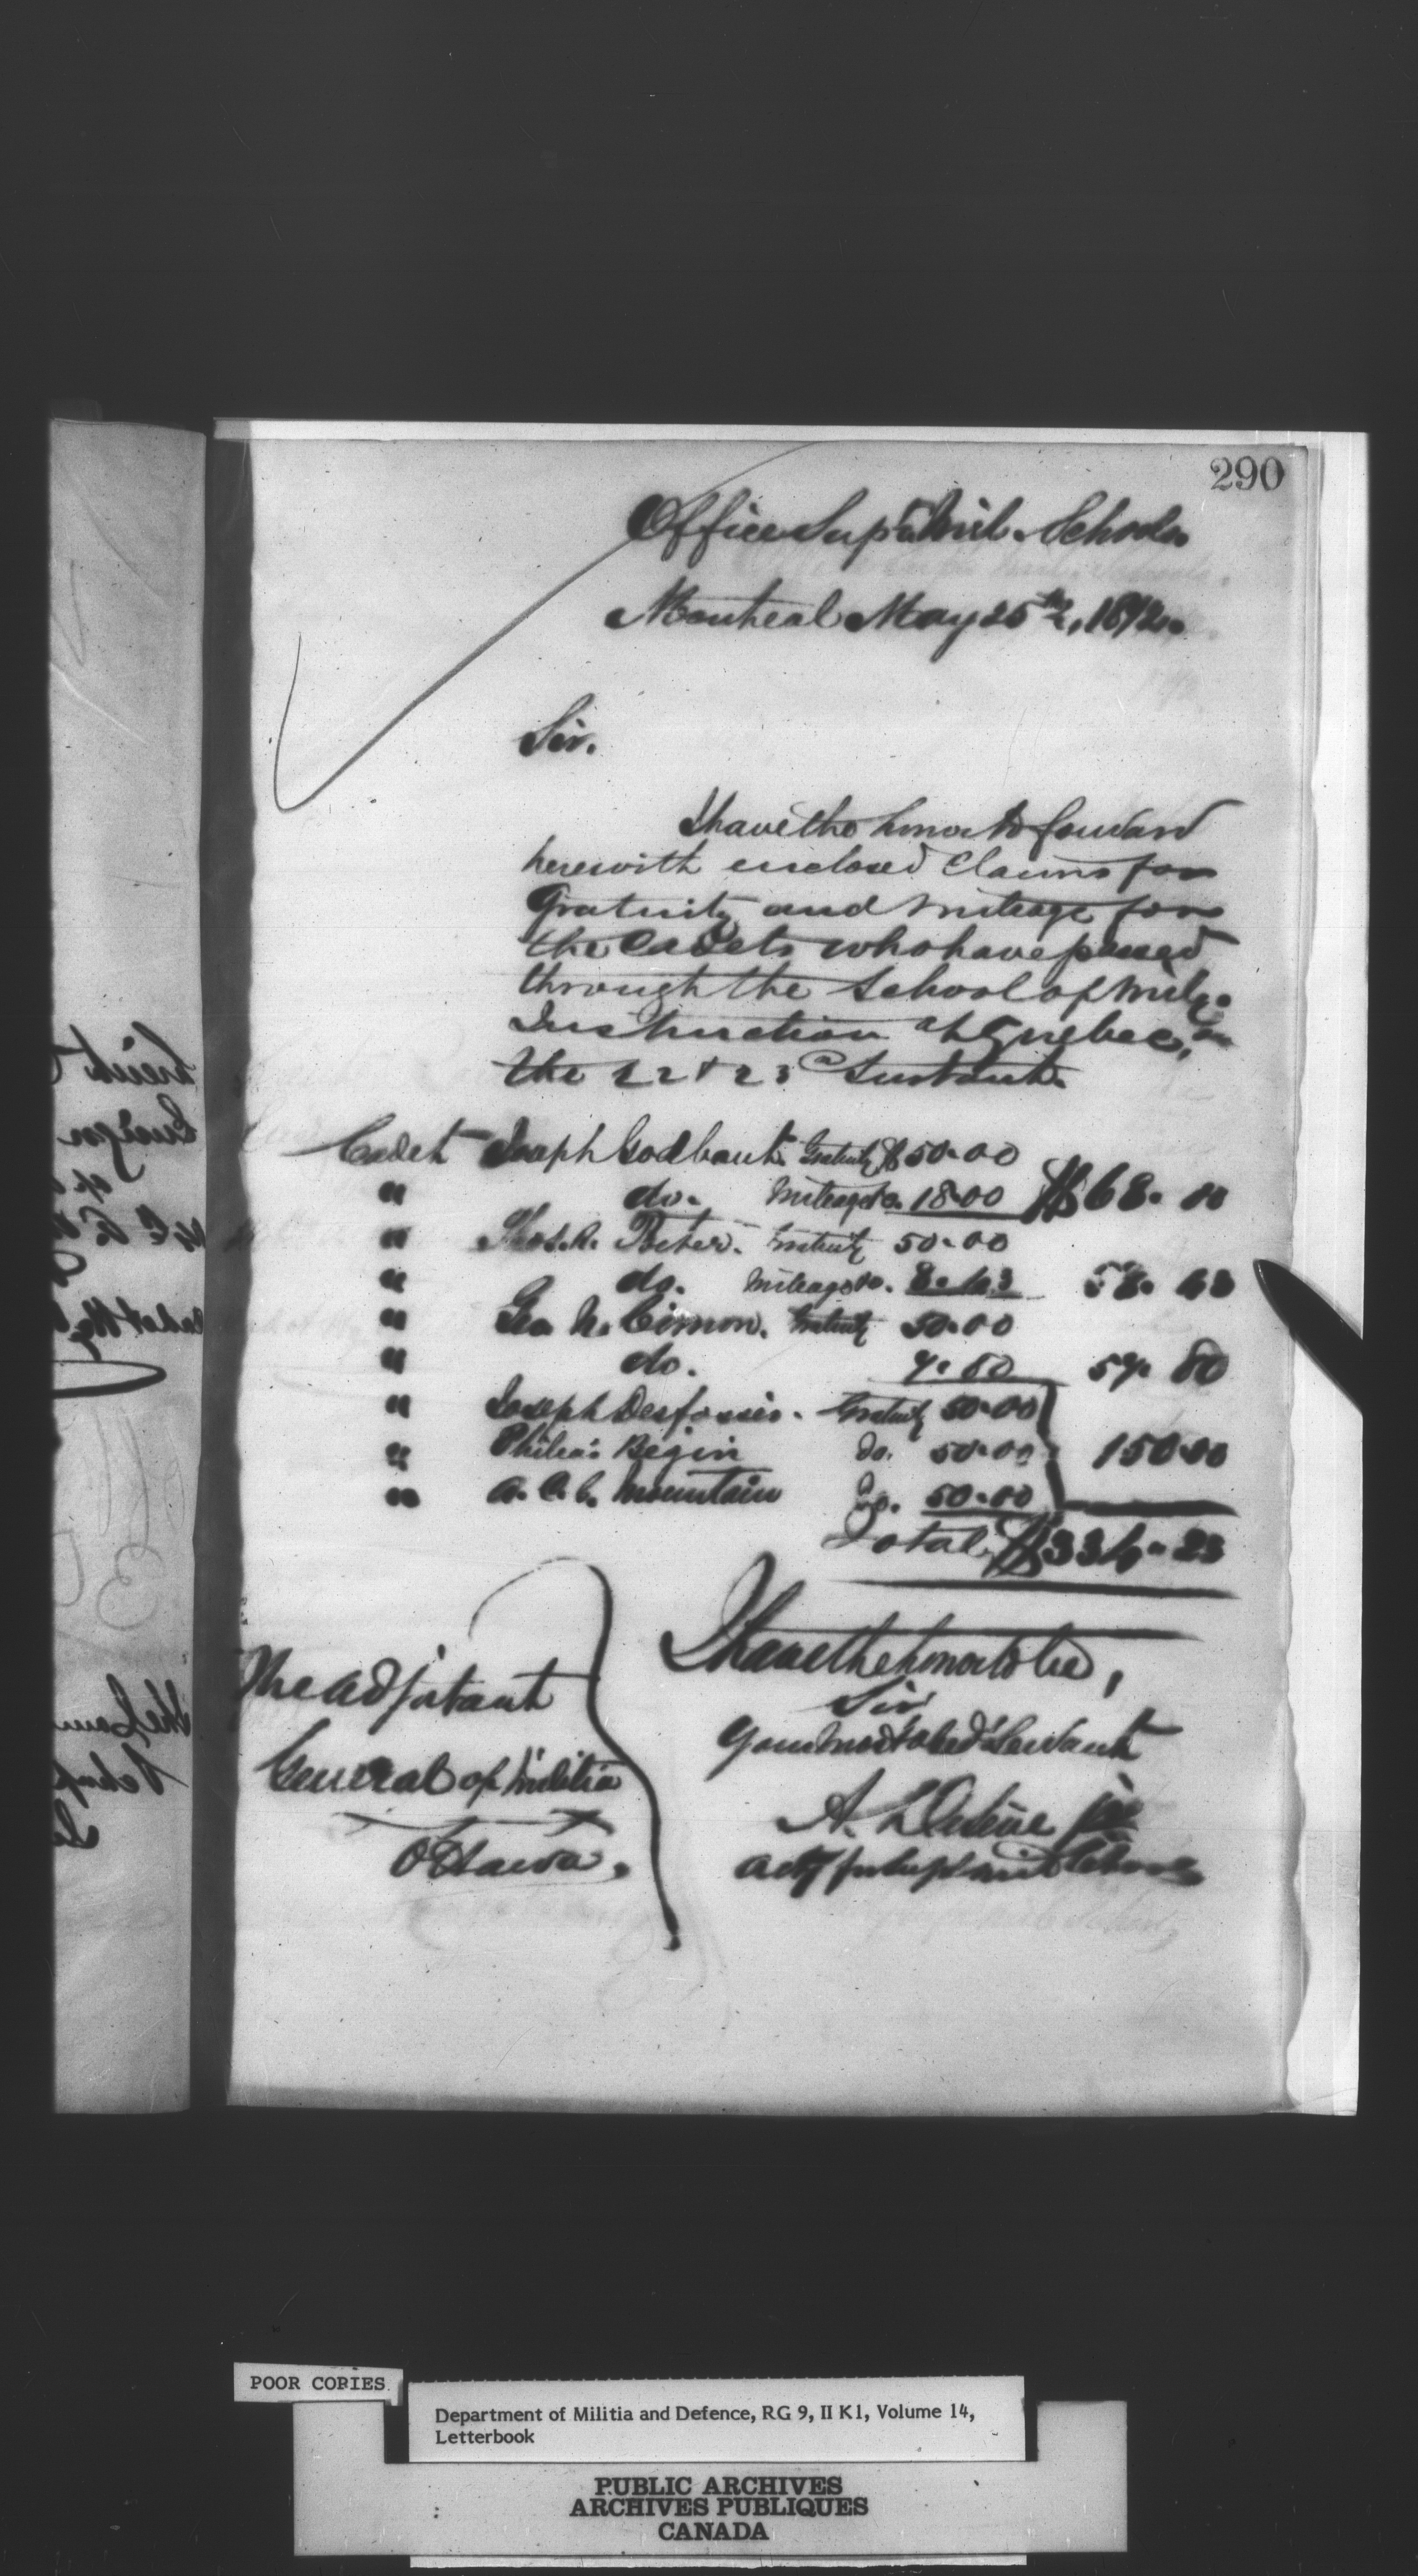 290
Office Supt Mil. Schools.
Montreal May 25th, 1872.
Sir.
I have the honor to forward
herewith enclosed Claims for
Gratuity and Mileage for
the Cadets who have passed
through the School of Mily.
Instruction at Quebec, on
the 22 & 23 Instant.
Cadet Joseph Godbout. Gratuity $50.00
" do. Mileage do. 18.00 $68.00
" Thos. A. Porter. Gratuity 50.00
" do. Mileage do. 8.43 58.43
" Geo. N. Cimon. Gratuity 50.00
" do. 7.80 57.80
" Joseph Desfosses. Gratuity 50.00
" Philéas Begin do. 50.00 150.00
" A. C. C. Mountain do. 50.00
Total $334.23
I have the honor to be,
Sir
Your most obed't Servant
The Adjutant
General of Militia
Ottawa.
POOR COPIES
Department of Militia and Defence, RG 9, II K1, Volume 14,
Letterbook
PUBLIC ARCHIVES
ARCHIVES PUBLIQUES
CANADA